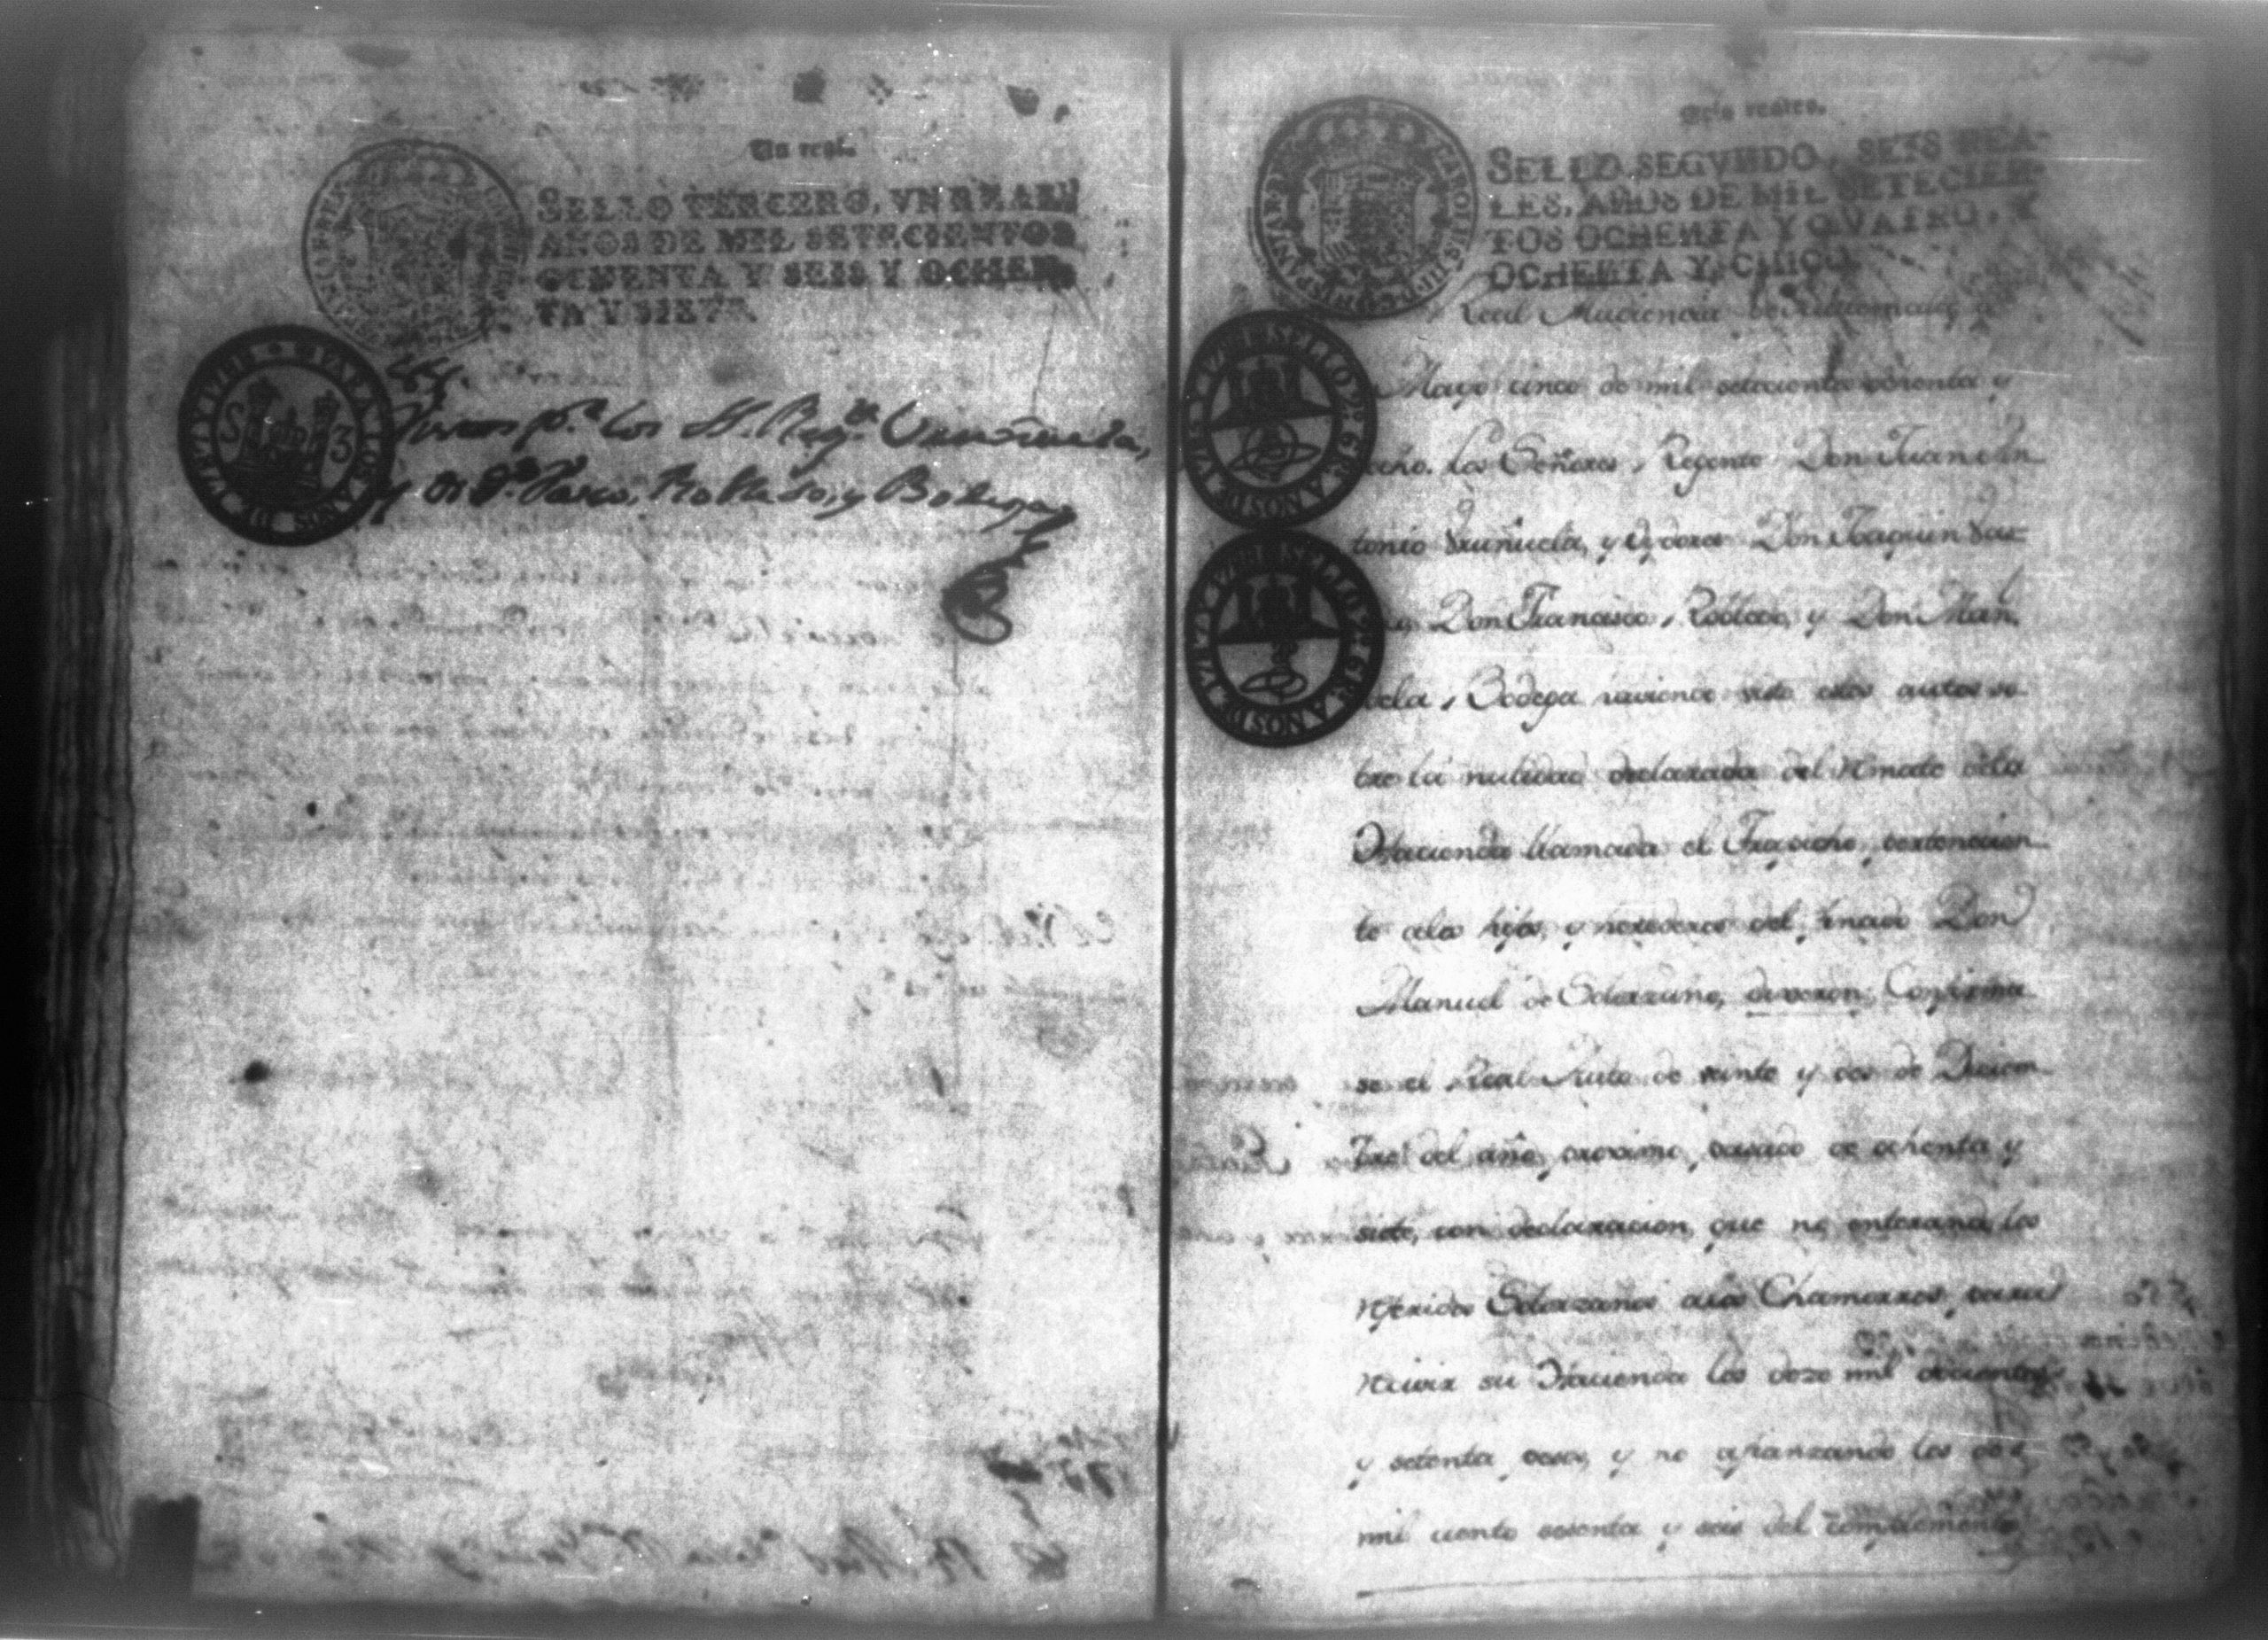 Un real.
SELLO TERCERO, VN REAL,
AÑOS DE MIL SETECIENTOS
OCHENTA Y SEIS Y OCHEN-
TA Y SIETE.
PARA LOS AÑOS DE 1787 Y 1788
S 3
Vistos p.r los SS. Reg.te Uruñuela,
y Oid.s Vasco, Robledo, y Bodega
Seis reales.
SELLO SEGVNDO, SEIS REA-
LES, AÑOS DE MIL SETECIEN-
TOS OCHENTA Y QVATRO, Y
OCHENTA Y CINCO.
SELLO 2º 6 R AÑOS DE
SELLO 2º 6 R AÑOS DE
Real Audiencia de Guatemala
Mayo cinco de mil setecientos ochenta y
ocho. Los Señores, Regente Don Juan An
tonio Uruñuela, y Oydores Don Joaquin Vas
co, Don Francisco, Robledo, y Don Man.
uela, Bodega haviendo visto estos autos so
bre la nulidad declarada del remate dela
Hacienda llamada el Trapiche, pertenecien
te alos hijos, y herederos del finado Don
Manuel de Solorzano, dixeron: Confirma
se el Real Auto de veinte y dos de Diciem
bre del año proximo pasado de ochenta y
siete, con declaracion, que no enterando los
referidos Solorzanos alos Chamorros para
recivir su Hacienda los doze mil docientos
y setenta pesos, y no afianzando los dos
mil ciento sesenta y seis del complemento